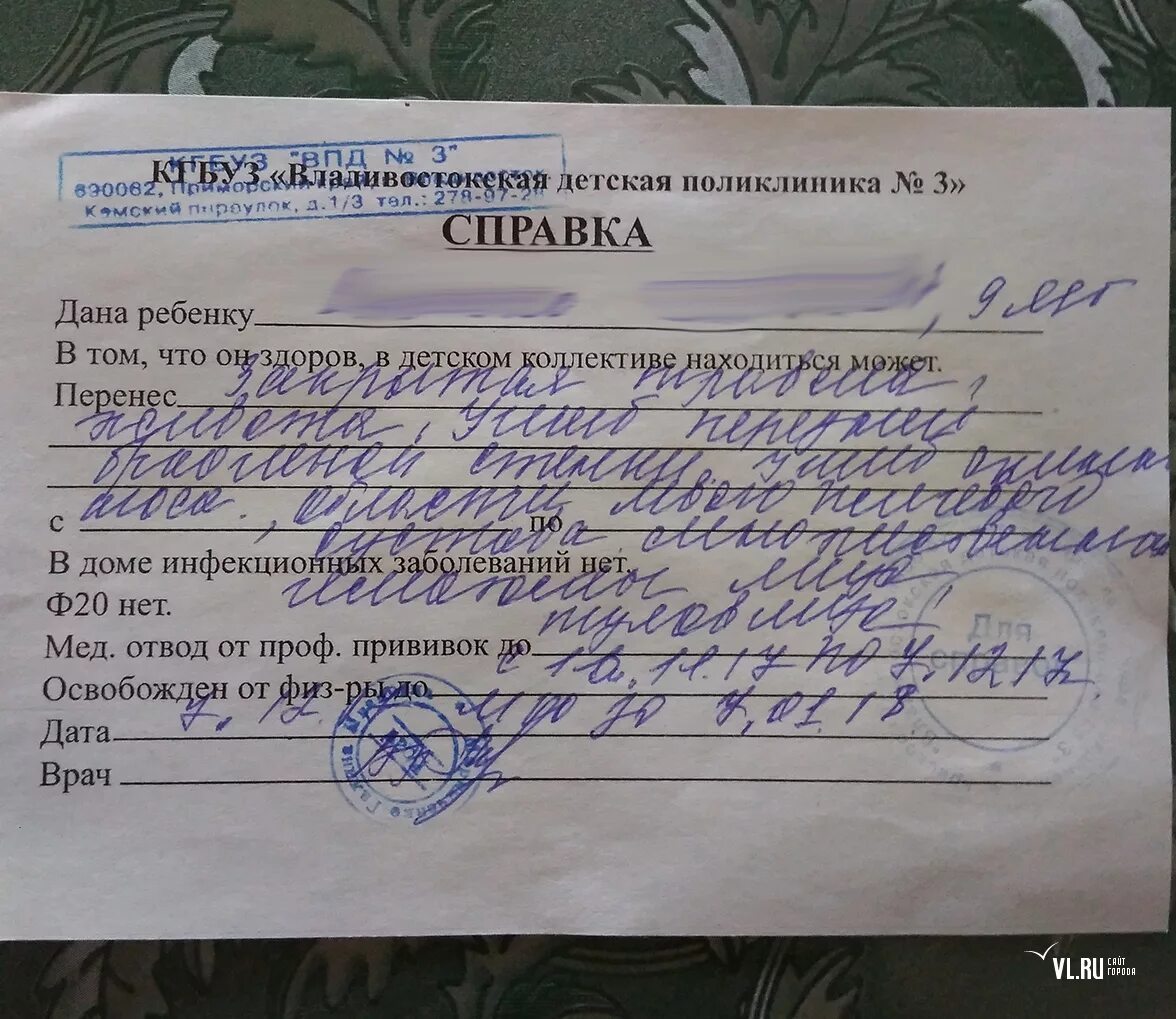 КГБУЗ "ВПД № 3"
690062, Приморский
Камский переулок, д.1/3 тел.: 278-97-2
КГБУЗ «Владивостокская детская поликлиника № 3»
СПРАВКА
Дана ребенку , 9 лет
В том, что он здоров, в детском коллективе находиться может.
Перенес Закрытая травма
живота, Ушиб передней
брюшной стенки, ушиб
носа, области левого плечевого
с по
сустава множественные
В доме инфекционных заболеваний нет.
гематомы лица,
Ф20 нет.
туловища
Для
справок
Мед. отвод от проф. прививок до
с 11.17 по 4.12.17.
Освобожден от физ-ры до
до 4.01.18
Дата
Врач
VL.RU САЙТ ГОРОДА